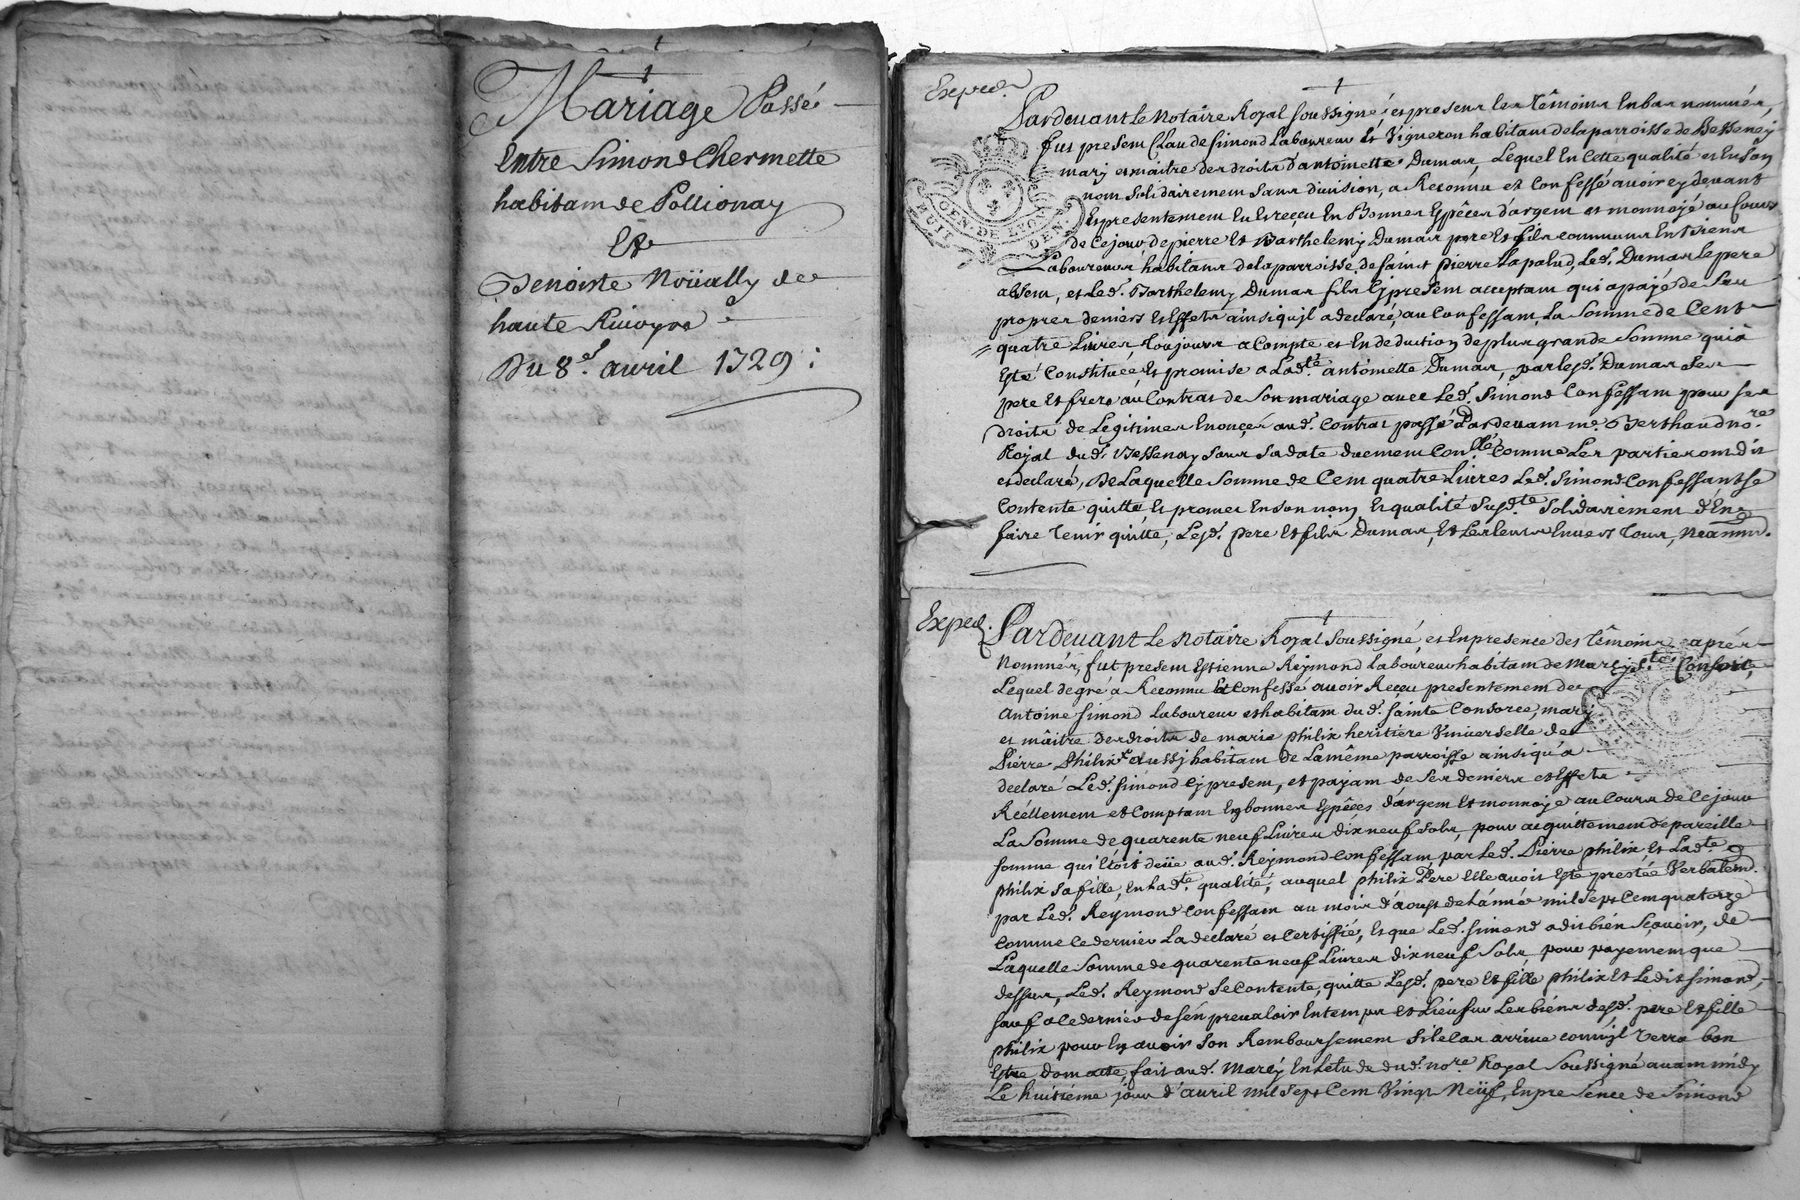 Mariage Passé
Entre Simond Chermette
habitant de Pollionay
Et
Benoiste Noüally de
haute Rivoyre
Du 8.e avril 1729 :
Exped.
Pardevant Le Notaire Royal soussigné, et presens les têmoins en bas nommés,
fut present Claude Simond Laboureur et Vigneron habitant de la parroisse de Bessenay
mary et maitre des droits d'antoinette Dumas, Lequel en cette qualité et en son
nom solidairement sans division, a Reconnu et confessé avoir cy devant
et presentement eu et reçeu en Bonnes Espêces d'argent et monnoyé au cours
de ce jour, de pierre et Barthelemy Dumas pere et fils communs en biens
Laboureurs habitans de la parroisse de saint pierre Lapalud, Led. Dumas le pere
absent, et Led. Barthelemy Dumas fils cy present acceptant qui a payé de ses
propres deniers et Effets ainsi qu'il a declaré, au Confessant, La somme de Cent
quatre Livres, toujours a compte et en deduction de plus grande somme qui a
esté Constituée et promise a Lad.te antoinette Dumas, par lesd. Dumas ses
pere et frere au Contrat de son mariage avec Led. Simond Confessant pour ses
droits de Legitimes Enonçés aud. Contrat passé Pardevant me. Berthaud no.re
Royal dud. Bessenay sous sa date duement Con.llé comme les parties ont dit
et declaré, De Laquelle somme de Cent quatre Livres Led. Simond Confessant se
Contente quitte et promet en son nom et qualité susd.te solidairement d'En
faire tenir quitte, Lesd. pere et fils Dumas, et les leurs Envers tous, Neanm.
Exped.
Pardevant Le Notaire Royal soussigné, et en presence des têmoins aprés
Nommés, fut present Estienne Reymond Laboureur habitant de Marcy, s.te Consorce,
Lequel de gré a Reconnu et confessé avoir Reçeu presentement de
Antoine simond Laboureur et habitant dud. sainte Consorce, mary
et mâitre des droits de marie philix heritiere Universelle de
Pierre Philix aussy habitant de La même parroisse ainsi qu'a
declaré Led. Simond cy present, et payant de ses deniers et Effets
Réellement et Comptant en bonnes Espêces d'argent et monnoye au Cours de Ce jour
La somme de quarente neuf Livres dix neuf sols, pour acquittement de pareille
somme qui êtoit deüe aud. Reymond Confessant, par Led. Pierre philix, et Lad.te
philix sa fille, en Lad.te qualité, auquel philix Pere elle avoit esté prestée Verbalem.
par Led. Reymond Confessant au mois d'aoust de L'année mil sept Cent quatorze
comme Ce dernier La declaré et Certiffié, et que Led. simond a dit bien sçavoir, de
Laquelle somme de quarente neuf Livres dix neuf sols, pour payement que
dessus, Led. Reymond se Contente, quitte Lesd. pere et fille philix et Ledit simond,
sauf a Ce dernier de s'en prevaloir en tems et Lieu sur Les biens desd. pere et fille
philix pour en avoir son Remboursement si le Cas arrive comme il verra bon
Estre dont acte, fait aud. Marcy en L'etude dud. no.re Royal soussigné avant midy
Le huitiéme jour d'avril mil sept Cent Vingt Neüf, en presence de Simond